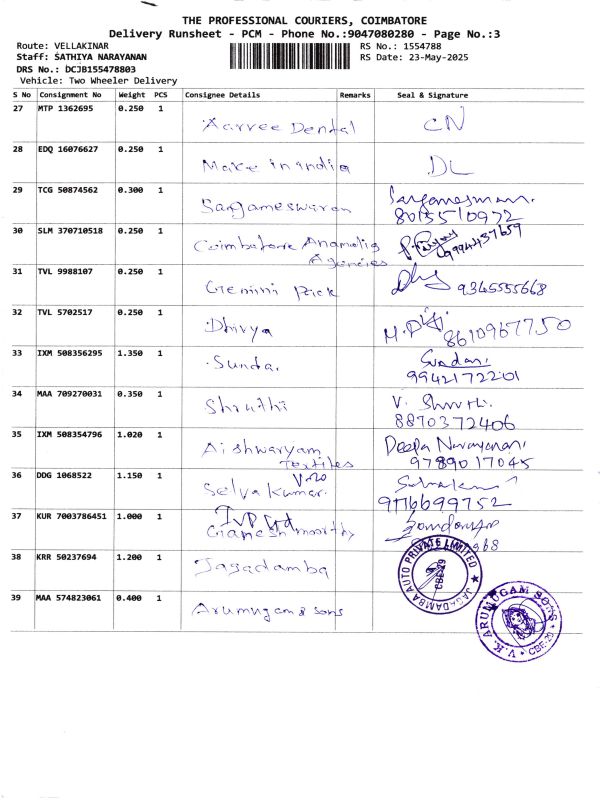 THE PROFESSIONAL COURIERS, COIMBATORE
Delivery Runsheet - PCM - Phone No.:9047080280 - Page No.:3
Route: VELLAKINAR RS No.: 1554788
Staff: SATHIYA NARAYANAN RS Date: 23-May-2025
DRS No.: DCJB155478803
Vehicle: Two Wheeler Delivery
S No Consignment No Weight PCS Consignee Details Remarks Seal & Signature
27 MTP 1362695 0.250 1 Aarvee Dental CN
28 EDQ 16076627 0.250 1 Make in india DL
29 TCG 50874562 0.300 1 Sangameswaran
8015510972
30 SLM 370710518 0.250 1 Coimbatore Anamalis
Agencies 9994437659
31 TVL 9988107 0.250 1 Gemini Rick 9345555668
32 TVL 5702517 0.250 1 Dhivya 8610967750
33 IXM 508356295 1.350 1 Sundar Sundari
9942172201
34 MAA 709270031 0.350 1 Shruthi V. Shruthi
8870372406
35 IXM 508354796 1.020 1 Aishwaryam Deepa Narayanan
Textiles 9789017045
36 DDG 1068522 1.150 1 Selva Kumar
9116699752
37 KUR 7003786451 1.000 1 IVP Ltd
Ganesh moorthy
38 KRR 50237694 1.200 1 Jagadamba JAGADAMBA AUTO PRIVATE LIMITED CBE-29
39 MAA 574823061 0.400 1 Arumugam & sons V.K. ARUMUGAM SONS CBE-29